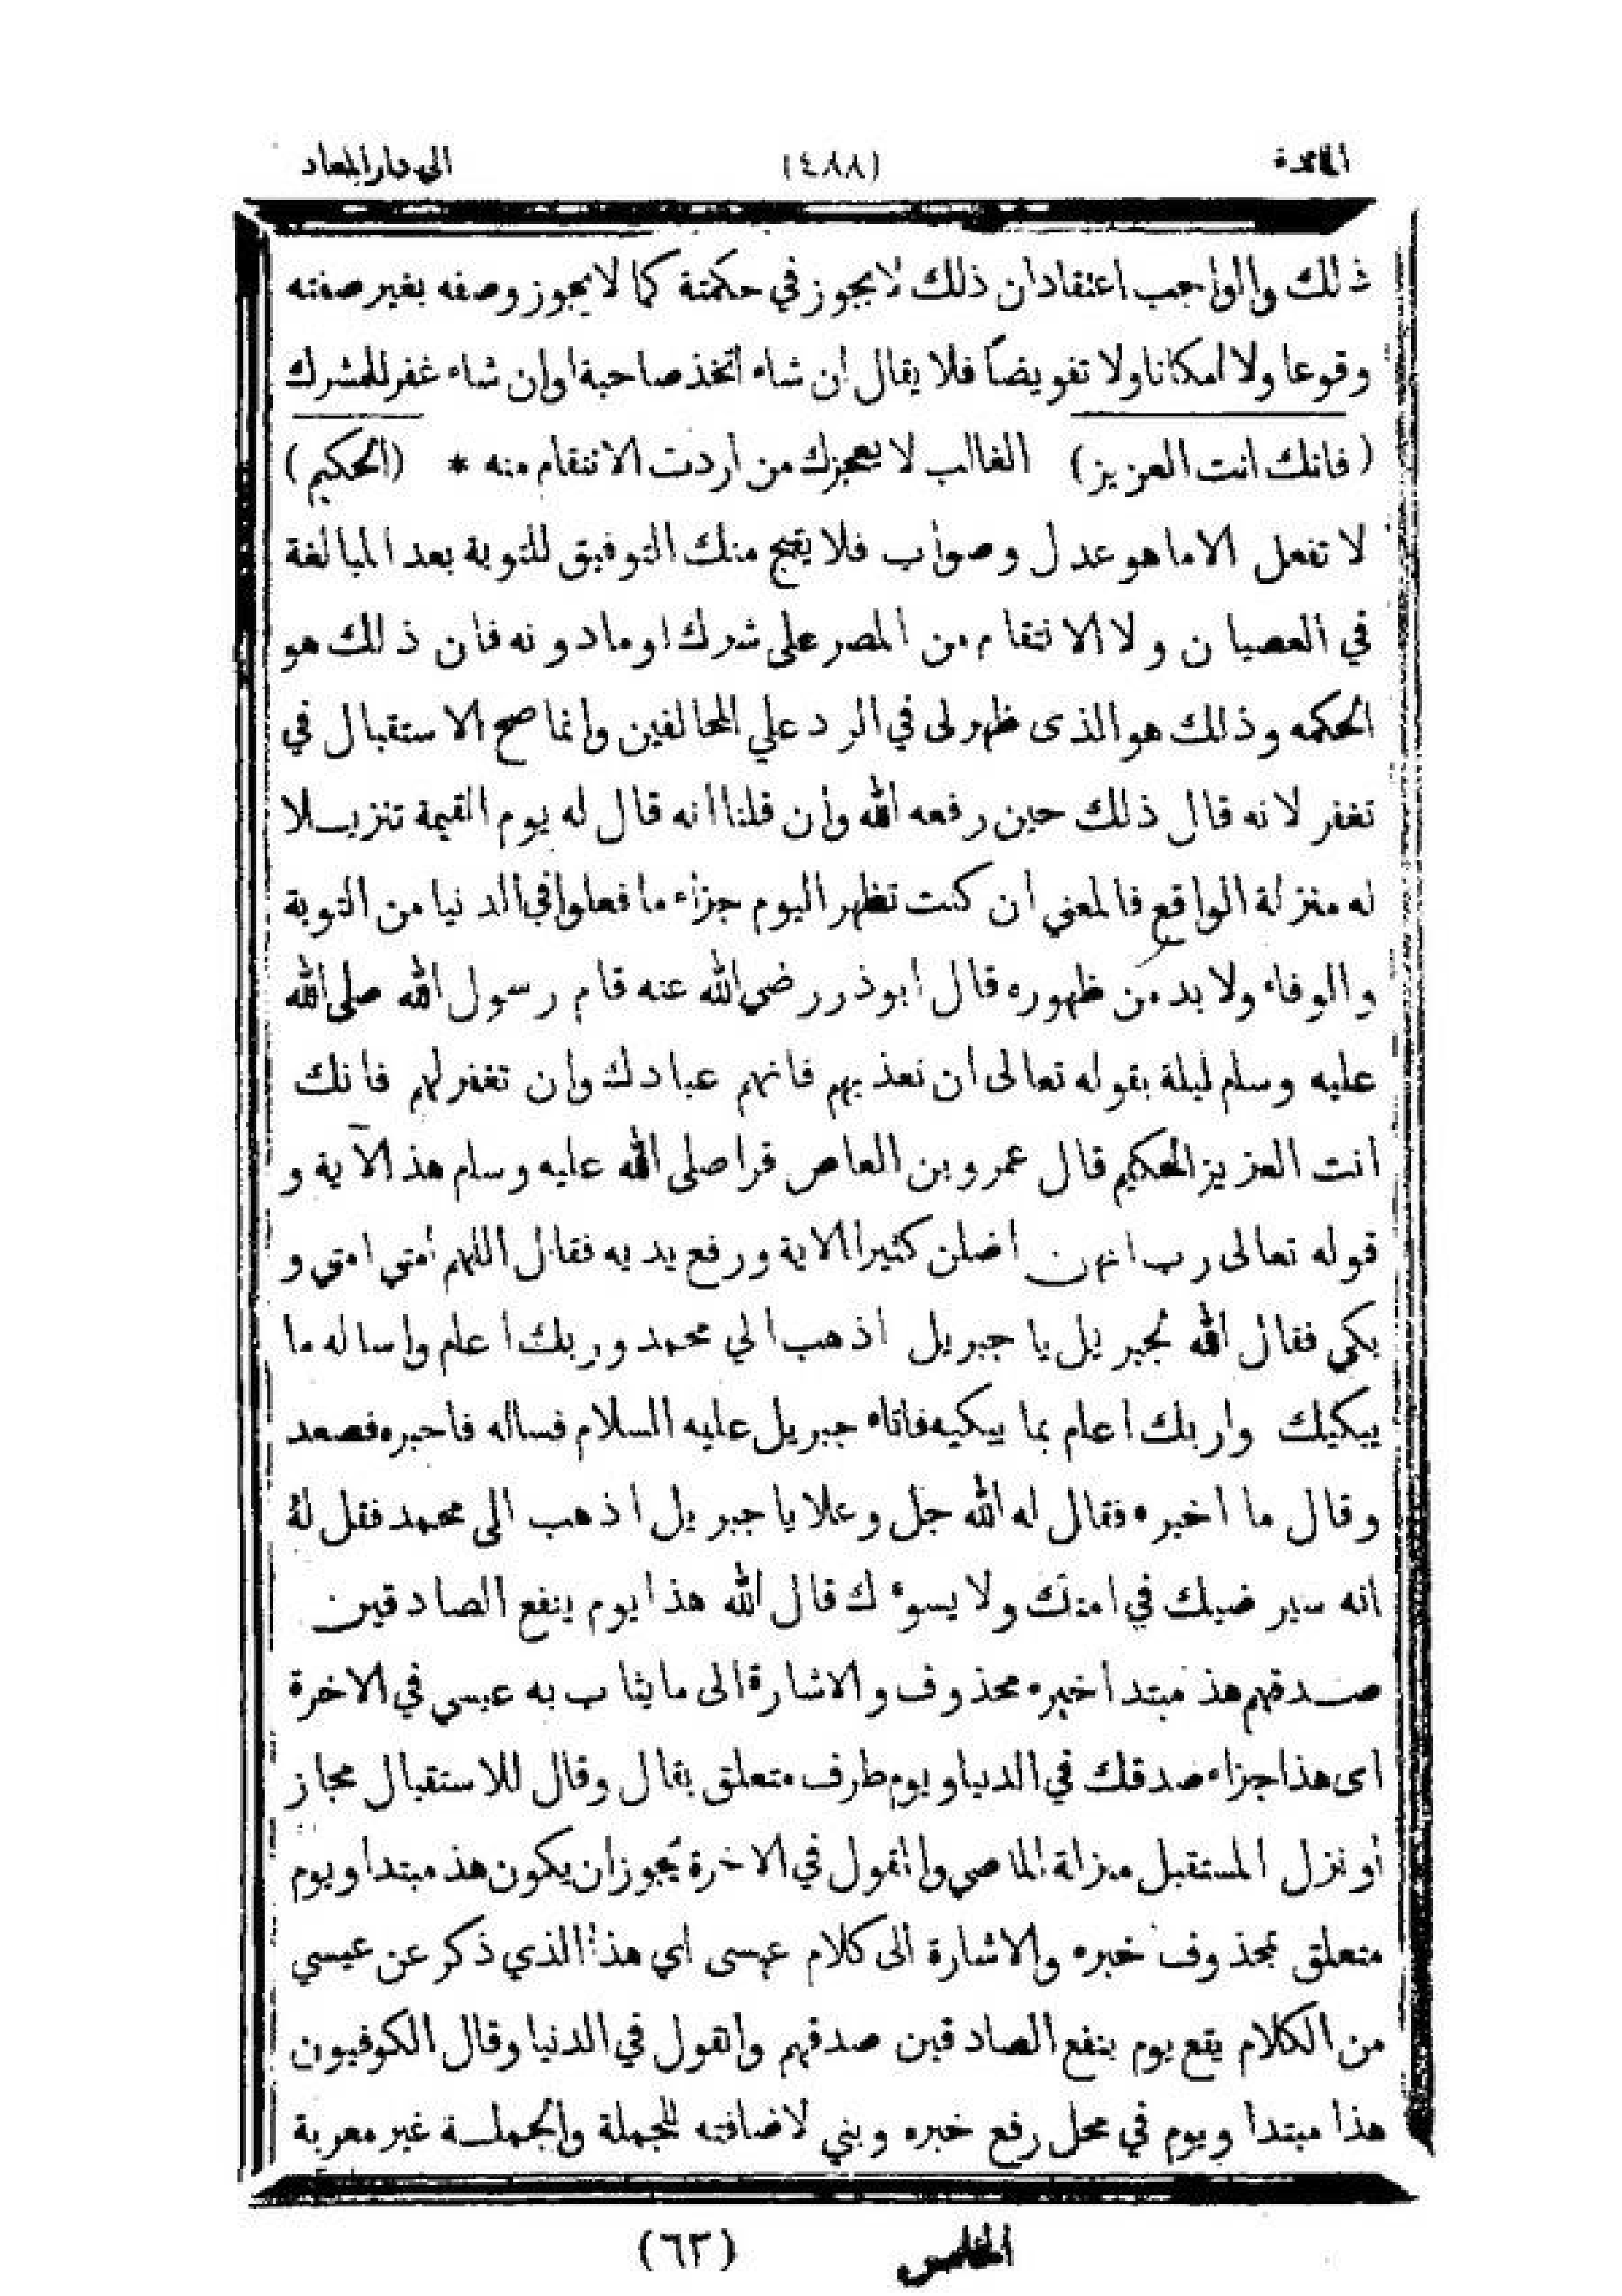 المائدة (٤٨٨) الى دار المعاد
ذلك والواجب اعتقاد ان ذلك لا يجوز في حكمتة كما لا يجوز وصفه بغير صفته
وقوعا ولا امكانا ولا تفويضاً فلا يقال ان شاء اتخذ صاحبة او ان شاء غفر للمشرك
( فانك انت العزيز ) الغالب لا يعجزك من اردت الانتقام منه * ( الحكيم )
لا تفعل الا ما هو عدل وصواب فلا يقبح منك التوفيق للتوبة بعد المبالغة
في العصيان ولا الانتقام من المصر على شرك او ما دونه فان ذلك هو
الحكمه وذلك هو الذى ظهر لى في الرد علي المخالفين وانما صح الاستقبال في
تغفر لانه قال ذلك حين رفعه الله وان قلنا انه قال له يوم القيمة تنزيلا
له منزلة الواقع فالمعني ان كنت تظهر اليوم جزاء ما فعلوا في الدنيا من التوبة
والوفاء ولا بد من ظهوره قال ابو ذر رضي الله عنه قام رسول الله صلى الله
عليه وسلم ليلة بقوله تعالى ان تعذبهم فانهم عبادك وان تغفر لهم فانك
انت العزيز الحكيم قال عمرو بن العاص قرا صلى الله عليه وسلم هذ الآية و
قوله تعالى رب انهن اضلن كثيرا الاية ورفع يديه فقال اللهم امتي امتي و
بكى فقال الله لجبريل يا جبريل اذهب الي محمد وربك اعلم واساله ما
يبكيك واربك اعلم بما يبكيه فاتاه جبريل عليه السلام فساله فاخبره فصعد
وقال ما اخبره فقال له الله جل وعلا يا جبريل اذهب الى محمد فقل له
انه سيرضيك في امتك ولا يسوءك قال الله هذا يوم ينفع الصادقين
صدقهم هذ مبتدا خبره محذوف والاشارة الى ما يثاب به عيسى في الاخرة
اى هذا جزاء صدقك في الدنيا ويوم ظرف متعلق بقال وقال للاستقبال مجاز
او نزل المستقبل منزلة الماضي والقول في الاخرة يجوز ان يكون هذ مبتدا ويوم
متعلق بمحذوف خبره والاشارة الى كلام عيسى اي هذا الذي ذكر عن عيسي
من الكلام يقع يوم ينفع الصادقين صدقهم والقول في الدنيا وقال الكوفيون
هذا مبتدا ويوم في محل رفع خبره وبني لاضافته للجملة والجملة غير معربة
الخامس (٦٣)